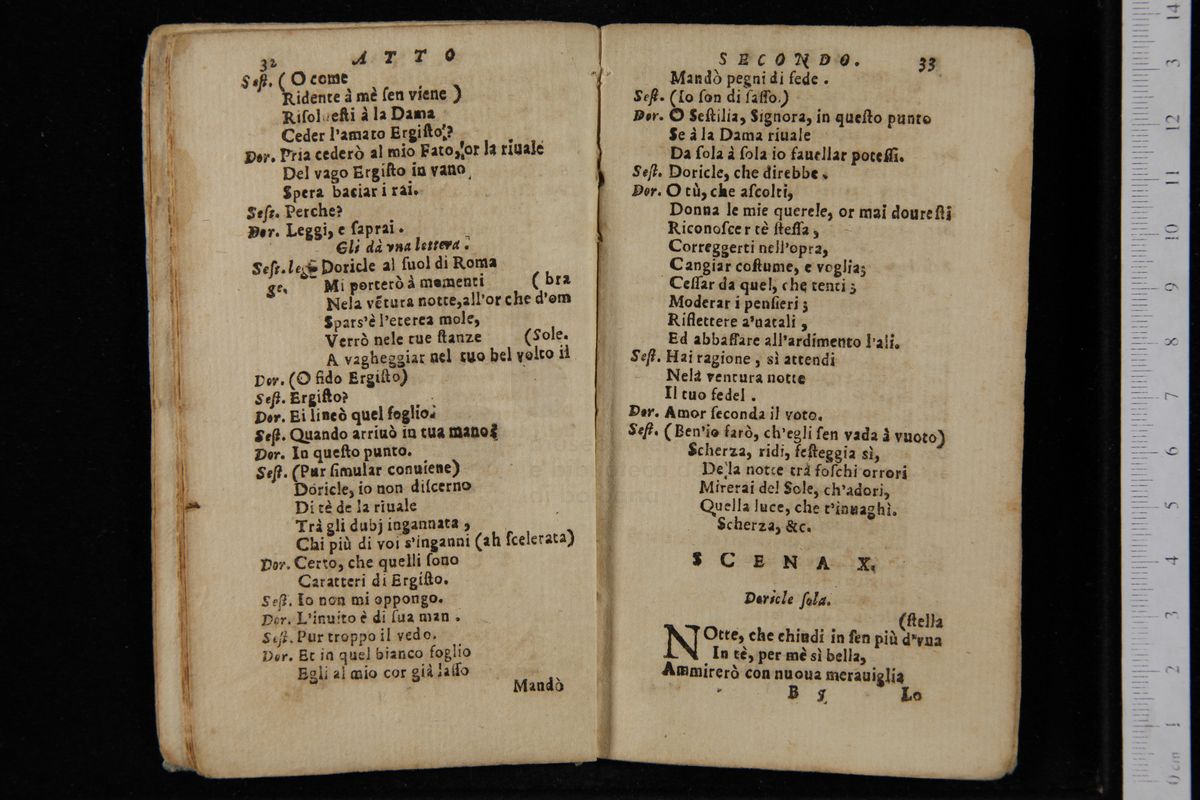 32 ATTO
Sest. ( O come
Ridente à mè sen viene )
Risoluesti à la Dama
Ceder l'amato Ergisto?
Dor. Pria cederò al mio Fato, or la riuale
Del vago Ergisto in vano
Spera baciar i rai.
Sest. Perche?
Dor. Leggi, e saprai.
Gli dà vna lettera.
Sest. legge. Doricle al suol di Roma
Mi porterò à momenti
Nela vẽtura notte, all'or che d'om ( bra
Spars'è l'eterea mole,
Verrò nele tue stanze
A vagheggiar nel tuo bel volto il (Sole.
Dor. (O fido Ergisto)
Sest. Ergisto?
Dor. Ei lineò quel foglio.
Sest. Quando arriuò in tua mano?
Dor. In questo punto.
Sest. (Pur simular conuiene)
Doricle, io non discerno
Di tè de la riuale
Trà gli dubj ingannata,
Chi più di voi s'inganni (ah scelerata)
Dor. Certo, che quelli sono
Caratteri di Ergisto.
Sest. Io non mi oppongo.
Dor. L'inuito è di sua man.
Sest. Pur troppo il vedo.
Dor. Et in quel bianco foglio
Egli al mio cor già lasso
Mandò
SECONDO. 33
Mandò pegni di fede.
Sest. (Io son di sasso.)
Dor. O Sestilia, Signora, in questo punto
Se à la Dama riuale
Da sola à sola io fauellar potessi.
Sest. Doricle, che direbbe.
Dor. O tù, che ascolti,
Donna le mie querele, or mai douresti
Riconoscer tè stessa,
Correggerti nell'opra,
Cangiar costume, e voglia;
Cessar da quel, che tenti;
Moderar i pensieri;
Riflettere a'natali,
Ed abbassare all'ardimento l'ali.
Sest. Hai ragione, sì attendi
Nela ventura notte
Il tuo fedel.
Dor. Amor seconda il voto.
Sest. (Ben'io farò, ch'egli sen vada à vuoto)
Scherza, ridi, festeggia sì,
Dela notte trà foschi orrori
Mirerai del Sole, ch'adori,
Quella luce, che t'inuaghì.
Scherza, &c.
SCENA X.
Doricle sola.
NOtte, che chiudi in sen più d'vna (stella
In tè, per mè sì bella,
Ammirerò con nuoua merauiglia
B 5 Lo